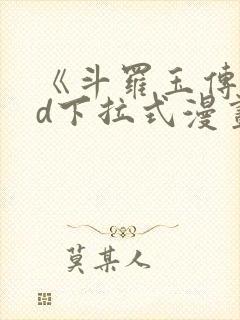 《斗羅玉傳
d下拉式漫畫
莫某人